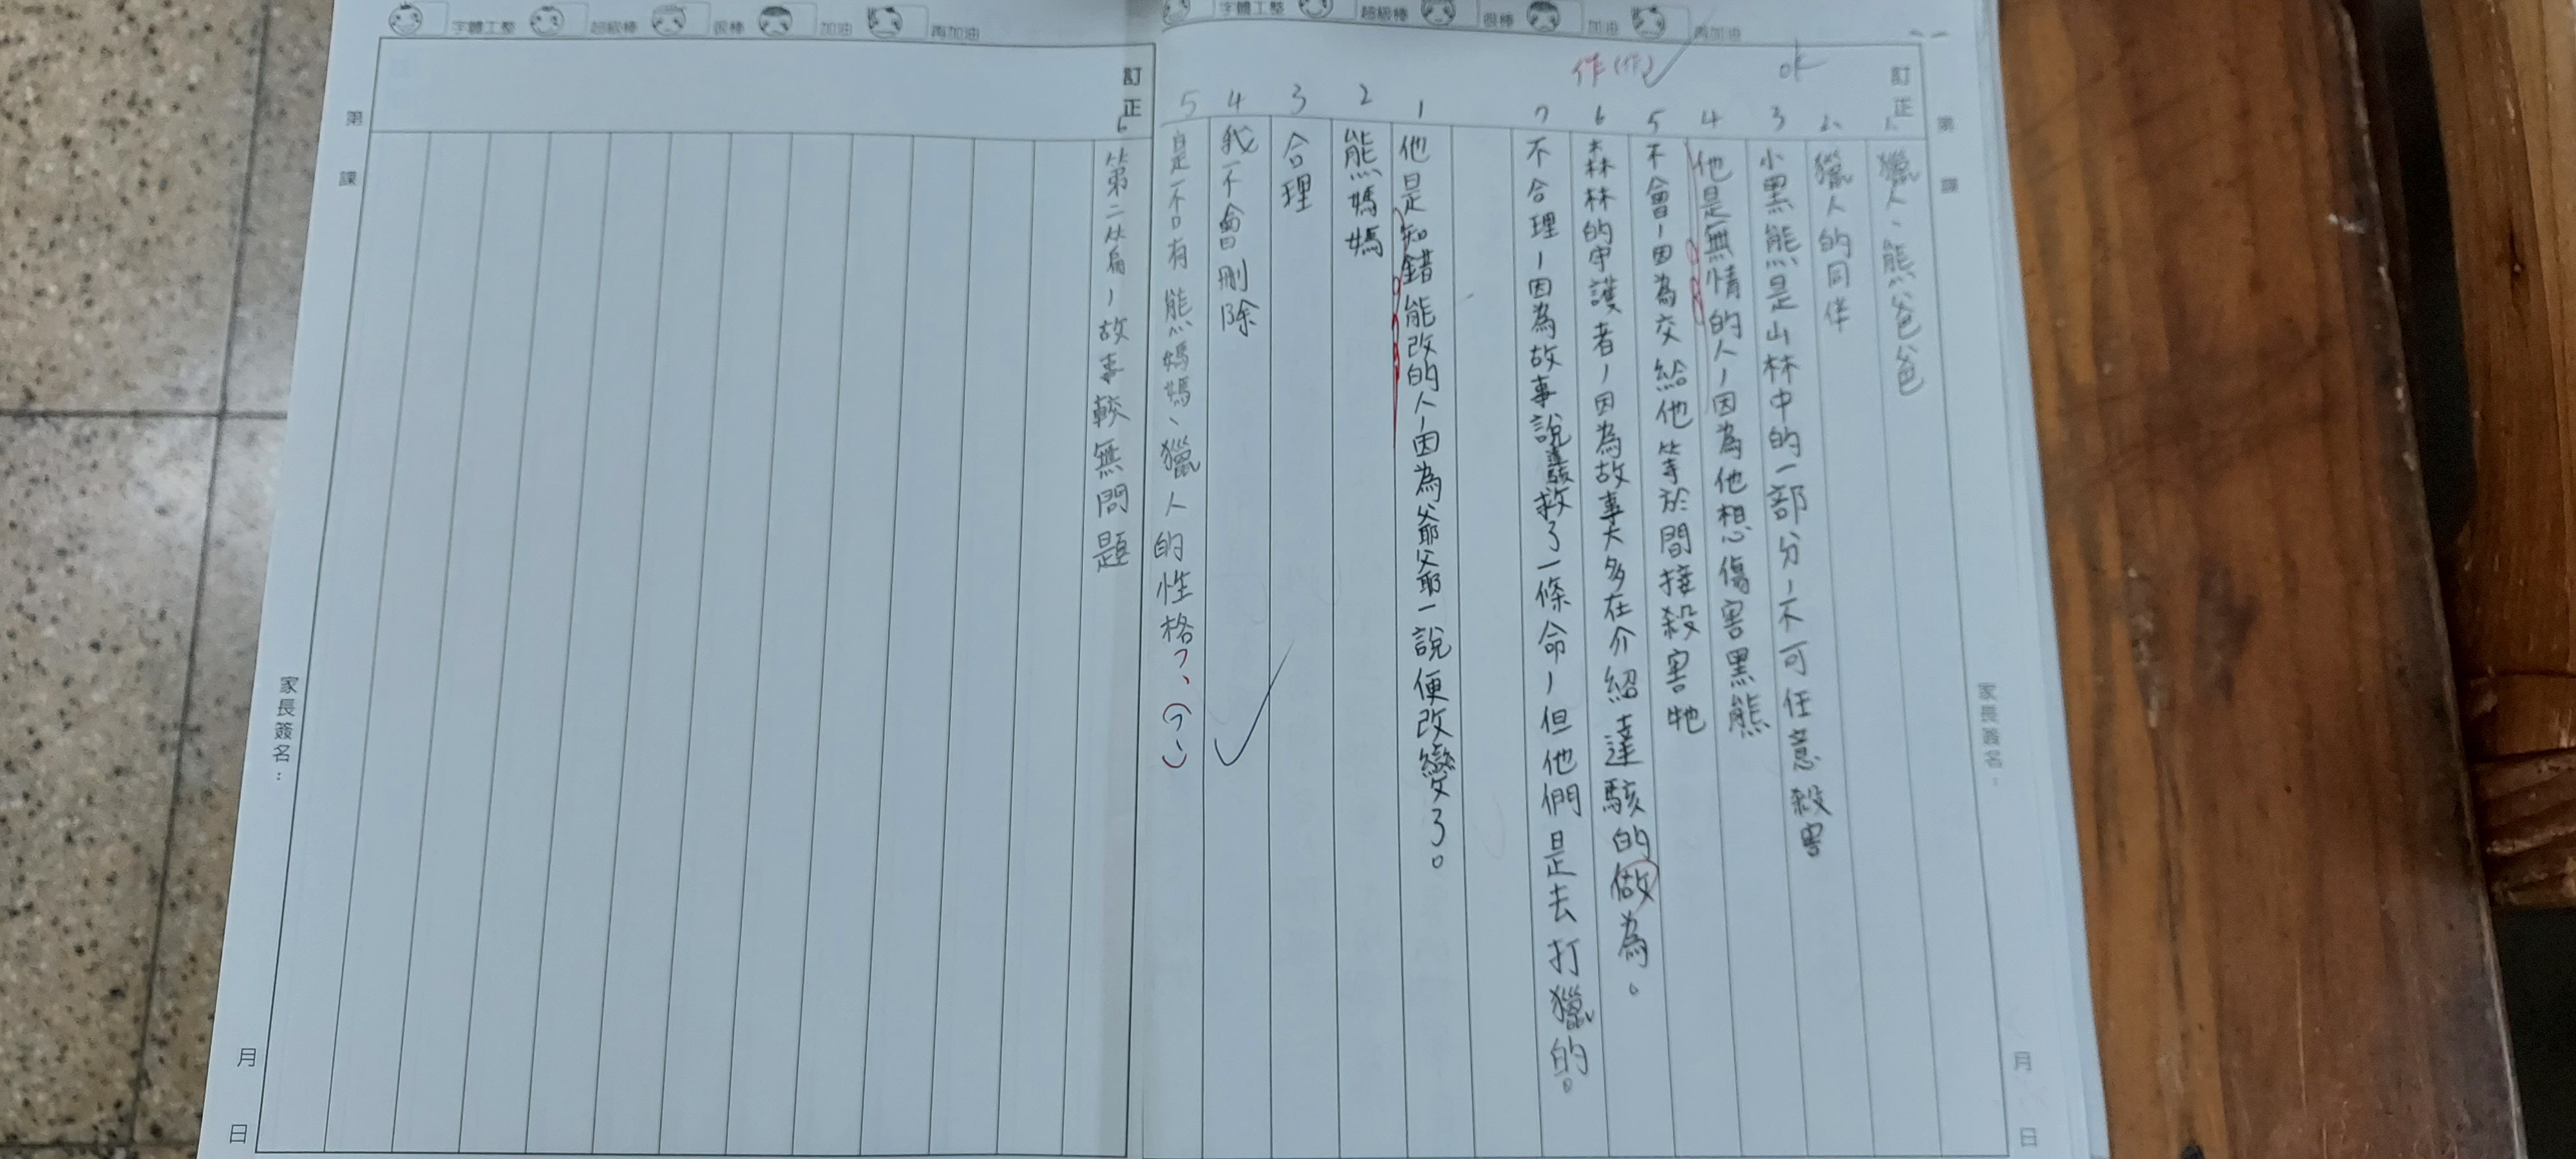 字體工整 超級棒 很棒 加油 再加油
訂正
第 課
ok
1. 獵人、熊爸爸
2. 獵人的同伴
3 小黑熊是山林中的一部分,不可任意殺害
4 他是無情的人,因為他想傷害黑熊
5 不會,因為交給他等於間接殺害牠
作(作)
6 森林的守護者,因為故事大多在介紹達駭的做為。
7 不合理,因為故事說達駭救了一條命,但他們是去打獵的。
1 他是知錯能改的人,因為爺爺一說便改變了。
2 熊媽媽
3 合理
4 我不會刪除
5 是不只有熊媽媽、獵人的性格?、(?)
家長簽名:
月 日
字體工整 超級棒 很棒 加油 再加油
訂正
6 第二篇,故事較無問題
第 課
家長簽名:
月 日